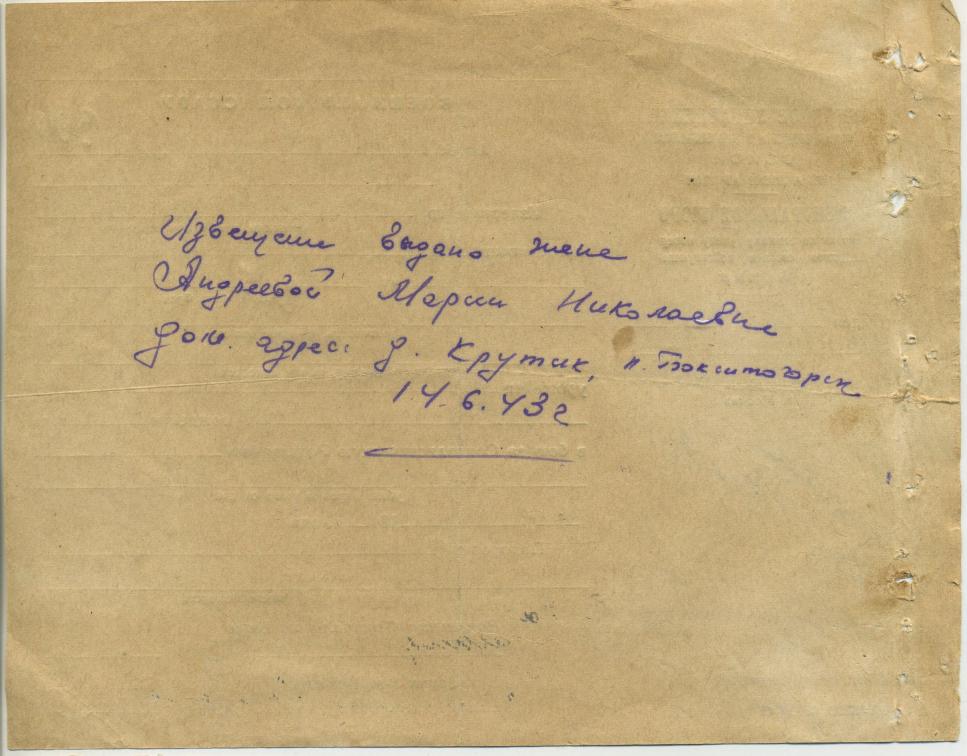 Извещение выдано жене
Андреевой Марии Николаевне
дом. адрес: д. Крутик, п. Бокситогорск
14.6.43г